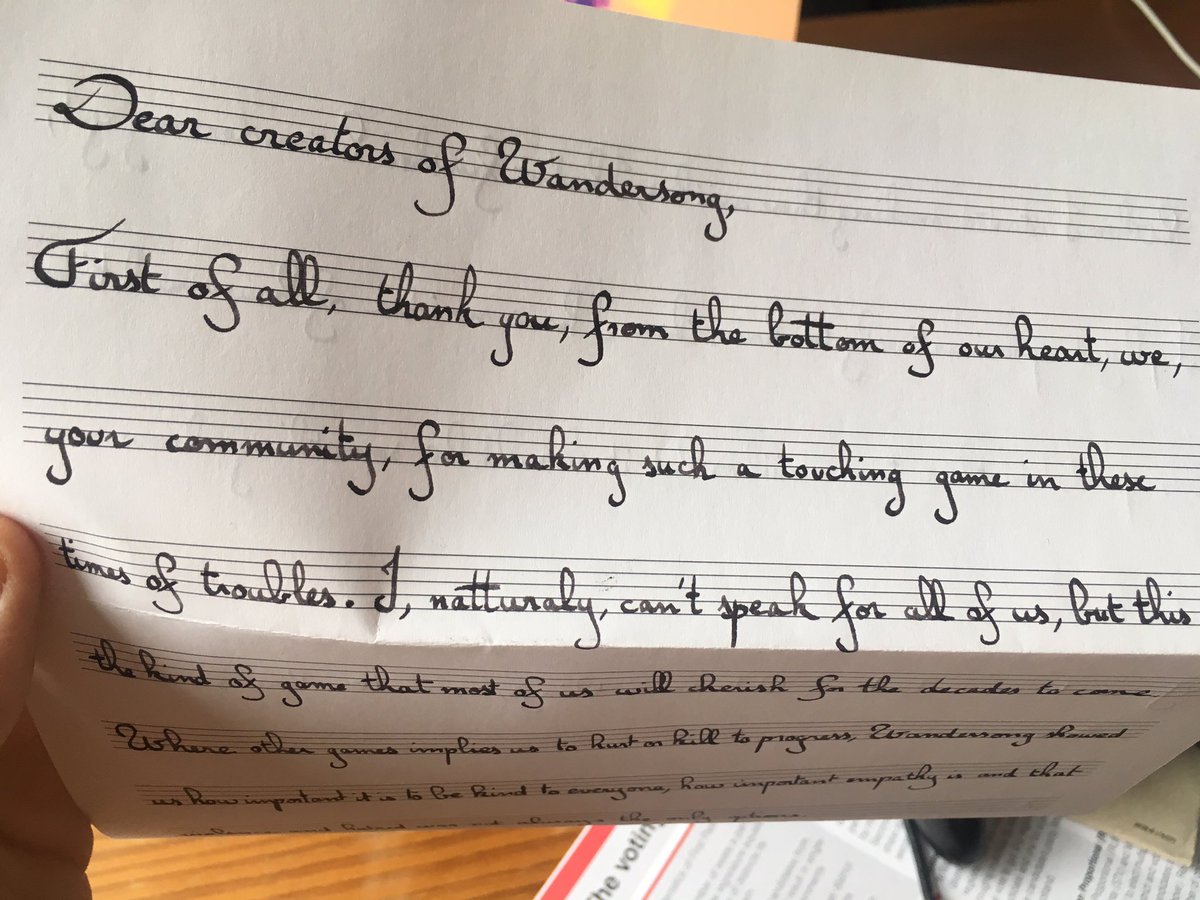 Dear creators of Wandersong,
First of all, thank you, from the bottom of our heart, we,
your community, for making such a touching game in these
times of troubles. I, natturaly, can't speak for all of us, but this
the kind of game that most of us will cherish for the decades to come
Where other games implies us to hurt or kill to progress, Wandersong showed
us how important it is to be kind to everyone, how important empathy is and that
and hatred was not always the only option.
The voting